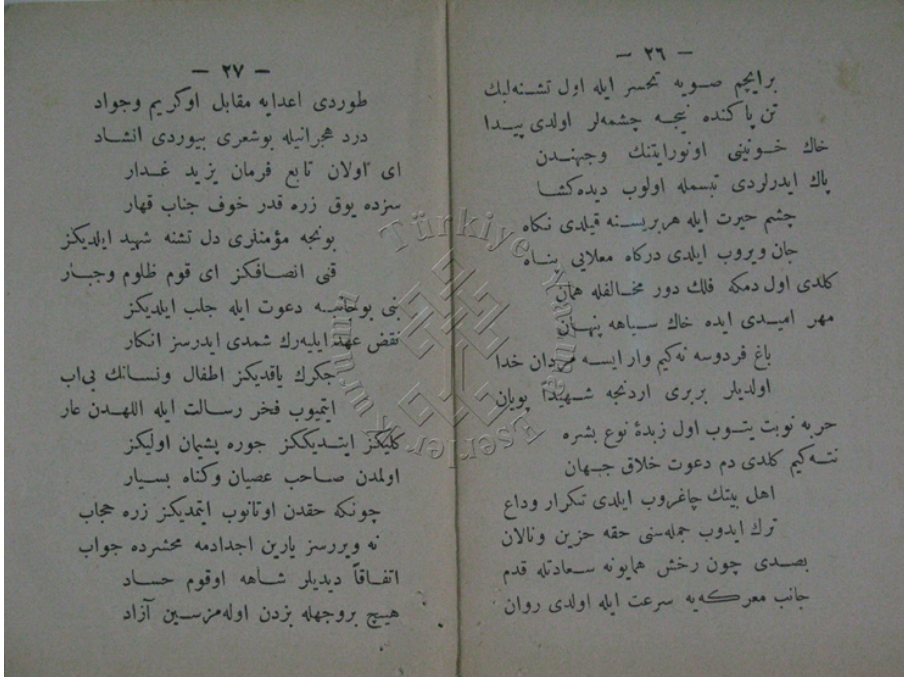 — ٢٦ —
بر ایچم صویه تحسر ایله اول تشنه‌لبك
تن پاكنده نیجه چشمه‌لر اولدی پیدا
خاك خونینی اونورایتنك وجهندن
پاك ایدرلردی تبسمله اولوب دیده‌كشا
چشم حیرت ایله هربریسنه قیلدی نكاه
جان ویروب ایلدی درگاه معلایی پناه
كلدی اول دمكه فلك دور مخالفله همان
مهر امیدی ایده خاك سیاهه پنهان
باغ فردوسه نه‌كیم وار ایسه مردان خدا
اولدیلر بربری اردنجه شهیدا پویان
حربه نوبت یتوب اول زبدهٔ نوع بشره
نته‌كیم كلدی دم دعوت خلاق جهان
اهل بیتك چاغروب ایلدی تكرار وداع
ترك ایدوب جمله‌سنی حقه حزین ونالان
بصدی چون رخش همایونه سعادتله قدم
جانب معركه‌یه سرعت ایله اولدی روان
— ٢٧ —
طوردی اعدایه مقابل اوكریم وجواد
درد هجرانیله بوشعری بیوردی انشاد
ای اولان تابع فرمان یزید غدار
سزده یوق زره قدر خوف جناب قهار
بونجه مؤمنلری دل تشنه شهید ایلدیكز
قنی انصافكز ای قوم ظلوم وجبار
بنی بوجانبه دعوت ایله جلب ایلدیكز
نقض عهد ایلیه‌رك شمدی ایدرسز انكار
جكرك یاقدیكز اطفال ونسانك بی‌اب
ایتمیوب فخر رسالت ایله اللهدن عار
كلیكز ایتدیككز جوره پشیمان اولیكز
اولمدن صاحب عصیان وكناه بسیار
چونكه حقدن اوتانوب ایتمدیكز زره حجاب
نه ویررسز یارین اجدادمه محشرده جواب
اتفاقاً دیدیلر شاهه اوقوم حساد
هیچ بروجهله بزدن اوله‌مزسین آزاد